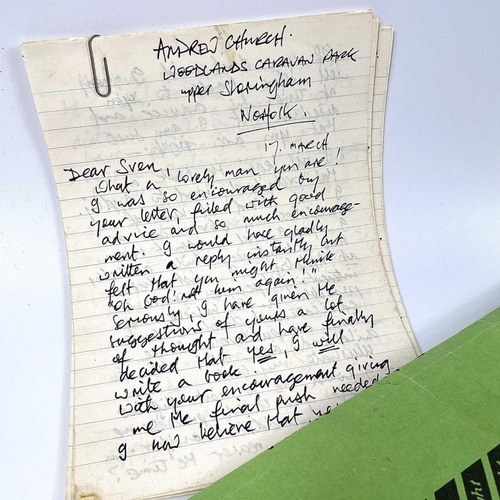 ANDREW CHURCH.
WOODLANDS CARAVAN PARK
upper Sheringham
Norfolk.
17. MARCH
Dear Sven
What a lovely man you are!
I was so encouraged by
your letter, filled with good
advice and so much encourage-
ment. I would have gladly
written a reply instantly but
felt that you might think
"oh God! not him again!"
Seriously, I have given the
suggestions of yours a lot
of thought and have finally
decided that yes, I will
write a book. 
With your encouragement giving
me the final push needed
I now believe that